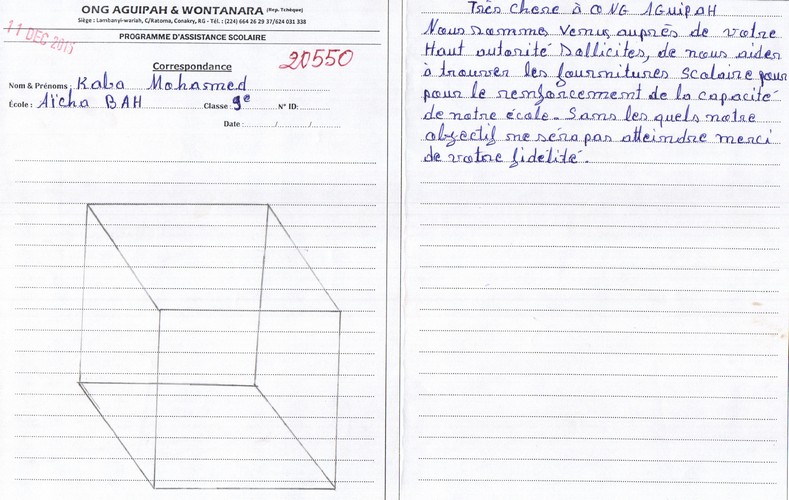 ONG AGUIPAH & WONTANARA (Rep. Tchèque)
Siège : Lambanyi-wariah, C/Ratoma, Conakry, RG - Tél.: (224) 664 26 29 37/624 031 338
11 DEC 2017
PROGRAMME D'ASSISTANCE SCOLAIRE
Correspondance
20550
Nom & Prénoms : Kaba Mohasmed
École : Aïcha BAH Classe : 9e N° ID:
Date : / /
Très chere à ONG AGuipAH
Nous somme Venus auprès de vôtre
Haut autorité Sollicites, de nous aider
à trouver les fournitures scolaire pour
pour le renforcement de la capacité
de notre école. Sans les quels notre
objectif ne séra pas atteindre merci
de votre fidélité.